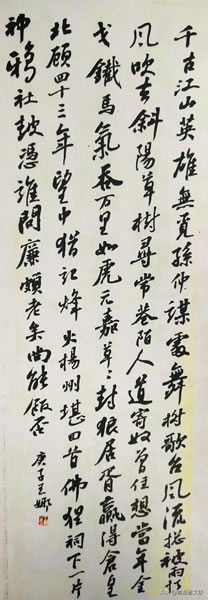 千古江山英雄無覓孫仲謀處舞榭歌台風流總被雨打
風吹去斜陽草樹尋常巷陌人道寄奴曾住想當年金
戈鐵馬氣吞万里如虎元嘉草々封狼居胥贏得倉皇
北顧四十三年望中猶記烽火楊州堪回首佛狸祠下一片
神鴉社鼓憑誰問廉頗老矣尚能飯否
庚子王娜